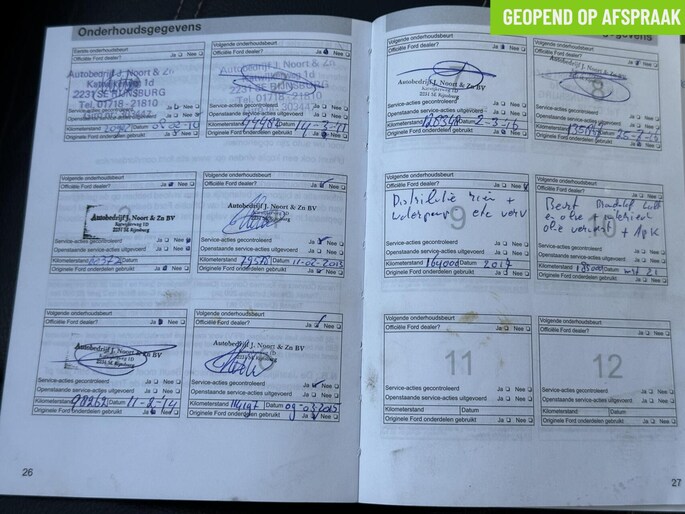 GEOPEND OP AFSPRAAK
Onderhoudsgegevens
Eerste onderhoudsbeurt
Officiële Ford dealer? Ja Nee
Autobedrijf J. Noort & Zn
2231 SE RIJNSBURG
Tel. 01718 - 21810
Service-acties gecontroleerd Ja Nee
Openstaande service-acties uitgevoerd Ja Nee
Kilometerstand Datum
Originele Ford onderdelen gebruikt Ja Nee
Volgende onderhoudsbeurt
Officiële Ford dealer? Ja Nee
Autobedrijf J. Noort & Zn
2231 SE RIJNSBURG
Tel. 01718 - 21810
Service-acties gecontroleerd Ja Nee
Openstaande service-acties uitgevoerd Ja Nee
Kilometerstand Datum 14-3-11
Originele Ford onderdelen gebruikt Ja Nee
Officiële Ford dealer? Ja Nee
Autobedrijf J. Noort & Zn BV
2231 SE Rijnsburg
Service-acties gecontroleerd Ja Nee
Openstaande service-acties uitgevoerd Ja Nee
Kilometerstand Datum
Originele Ford onderdelen gebruikt Ja Nee
Volgende onderhoudsbeurt
Officiële Ford dealer? Ja Nee
Autobedrijf J. Noort & Zn BV
2231 SE Rijnsburg
Service-acties gecontroleerd Ja Nee
Openstaande service-acties uitgevoerd Ja Nee
Kilometerstand Datum 11-02-2013
Originele Ford onderdelen gebruikt Ja Nee
Volgende onderhoudsbeurt
Officiële Ford dealer? Ja Nee
Autobedrijf J. Noort & Zn BV
Service-acties gecontroleerd Ja Nee
Openstaande service-acties uitgevoerd Ja Nee
Kilometerstand 98262 Datum 11-2-'14
Originele Ford onderdelen gebruikt Ja Nee
Volgende onderhoudsbeurt
Officiële Ford dealer? Ja Nee
Autobedrijf J. Noort & Zn BV
2231 SE Rijnsburg
Service-acties gecontroleerd Ja Nee
Openstaande service-acties uitgevoerd Ja Nee
Kilometerstand Datum
Originele Ford onderdelen gebruikt Ja Nee
26
Volgende onderhoudsbeurt
Officiële Ford dealer? Ja Nee
Autobedrijf J. Noort & Zn BV
2231 SE Rijnsburg
Service-acties gecontroleerd Ja Nee
Openstaande service-acties uitgevoerd Ja Nee
Kilometerstand 128348 Datum 2-3-16
Originele Ford onderdelen gebruikt Ja Nee
Volgende onderhoudsbeurt
Officiële Ford dealer? Ja Nee
8
Service-acties gecontroleerd Ja Nee
Openstaande service-acties uitgevoerd Ja Nee
Kilometerstand Datum
Originele Ford onderdelen gebruikt Ja Nee
Volgende onderhoudsbeurt
Officiële Ford dealer? Ja Nee
Distributie riem +
waterpomp
9
Service-acties gecontroleerd Ja Nee
Openstaande service-acties uitgevoerd Ja Nee
Kilometerstand 164000 Datum 2017
Originele Ford onderdelen gebruikt Ja Nee
Volgende onderhoudsbeurt
Officiële Ford dealer? Ja Nee
+ apk
Service-acties gecontroleerd Ja Nee
Openstaande service-acties uitgevoerd Ja Nee
Kilometerstand 185000 Datum mrt 21
Originele Ford onderdelen gebruikt Ja Nee
Volgende onderhoudsbeurt
Officiële Ford dealer? Ja Nee
11
Service-acties gecontroleerd Ja Nee
Openstaande service-acties uitgevoerd Ja Nee
Kilometerstand Datum
Originele Ford onderdelen gebruikt Ja Nee
Volgende onderhoudsbeurt
Officiële Ford dealer? Ja Nee
12
Service-acties gecontroleerd Ja Nee
Openstaande service-acties uitgevoerd Ja Nee
Kilometerstand Datum
Originele Ford onderdelen gebruikt Ja Nee
27